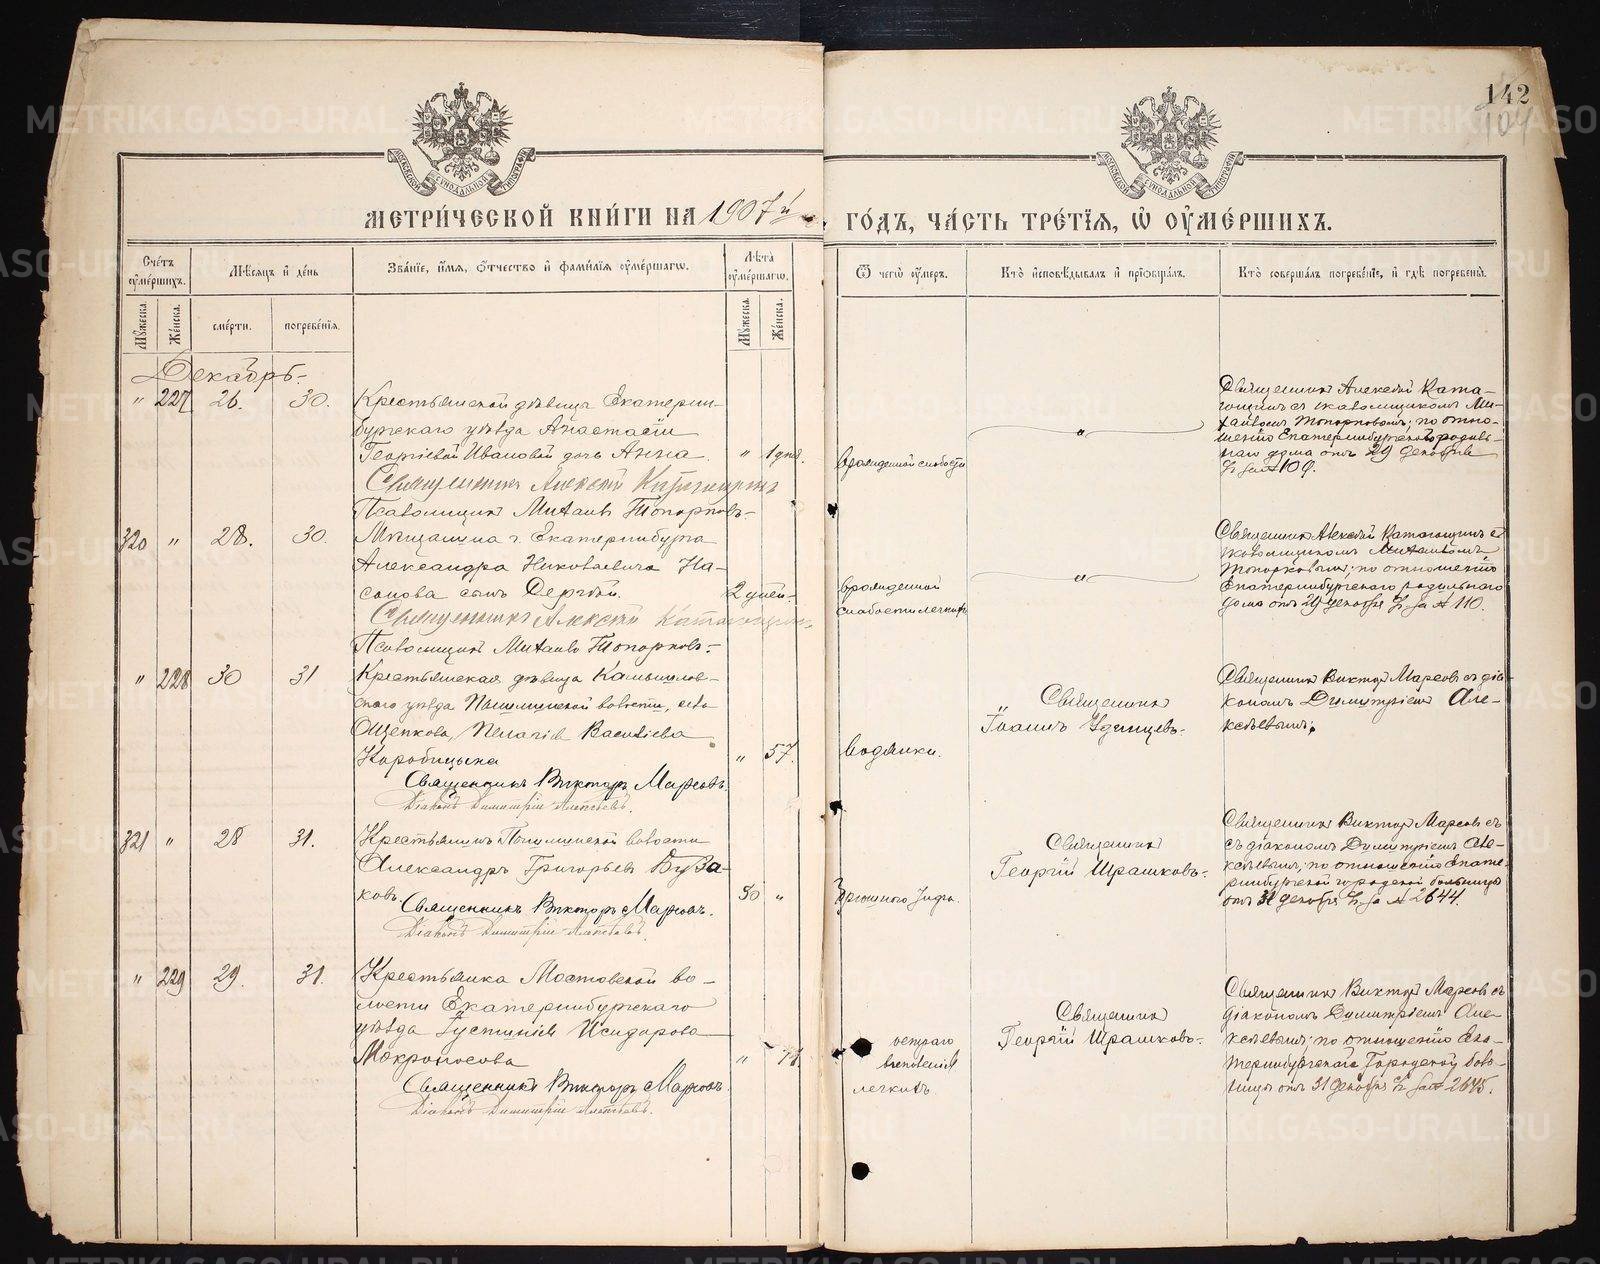 142
104
МОСКОВСКОЙ СѴНОДАЛЬНОЙ ТИПОГРАФІИ
МОСКОВСКОЙ СѴНОДАЛЬНОЙ ТИПОГРАФІИ
МЕТРИ́ЧЕСКОЙ КНИ́ГИ НА 1907й ГО́ДЪ, ЧА́СТЬ ТРЕ́ТІЯ, Ѡ ОУМЕ́РШИХЪ.
Сче́тъ оуме́ршихъ.
Мѣ́сяцъ и де́нь
Зва́ніе, и́мя, о́тчество и фами́лія оуме́ршагѡ.
Лѣ́та оуме́ршагѡ.
Ѿ чегѡ̀ оу́меръ.
Кто̀ исповѣ́дывалъ и пріѡбща́лъ.
Кто̀ соверша́лъ погребе́ніе, и гдѣ̀ погребены̀.
Му́жеска.
Же́нска.
сме́рти.
погребе́нія.
Му́жеска.
Же́нска.
Декабрь.
" 227 26. 30.
Крестьянской дѣвицы Екатерин-
бургскаго уѣзда Анастасіи
Георгіевой Ивановой дочь Анна. " 1 дня.
Священникъ Алексѣй
Псаломщикъ Михаилъ Топорковъ.
врожденной слабости
"
Священникъ Алексѣй
съ псаломщикомъ Ми-
хаиломъ Топорковымъ; по отно-
шенію Екатеринбургскаго родиль-
наго дома отъ 29 декабря
за № 109.
320 " 28. 30.
Мѣщанина г. Екатеринбурга
Александра Николаевича На-
сонова сынъ Сергѣй. 2 дней.
Священникъ Алексѣй
Псаломщикъ Михаилъ Топорковъ.
врожденной
слабости легкихъ
"
Священникъ Алексѣй съ
псаломщикомъ Михаиломъ
Топорковымъ; по отношенію
Екатеринбургскаго родильнаго
дома отъ 29 декабря за № 110.
" 228 30 31
Крестьянская дѣвица Камышлов-
скаго уѣзда Пышминской волости, села
Ощепкова, Пелагія Васильева
Коробицына " 57.
Священникъ Викторъ Марсовъ.
Діаконъ Димитрій Алексѣевъ.
водянки.
Священникъ
Іоаннъ Удинцевъ.
Священникъ Викторъ Марсовъ съ діа-
кономъ Димитріемъ Але-
ксѣевымъ;
321 " 28 31.
Крестьянинъ Пышминской волости
Александръ Григорьевъ Буза-
ковъ 50 "
Священникъ Викторъ Марсовъ.
Діаконъ Димитрій Алексѣевъ.
брюшного тифа.
Священникъ
Георгій Шрашковъ.
Священникъ Викторъ Марсовъ съ
съ діакономъ Димитріемъ Але-
ксѣевымъ; по отношенію Екате-
ринбургской городской больницы
отъ 31 декабря за № 2644.
" 229 29. 31.
Крестьянка Мостовской во-
лости Екатеринбургскаго
уѣзда Іустинія Исидорова
Мокроносова " 78.
Священникъ Викторъ Марсовъ
Діаконъ Димитрій Алексѣевъ.
остраго
воспаленія
легкихъ.
Священникъ
Георгій Шрашковъ.
Священникъ Викторъ Марсовъ съ
діакономъ Димитріемъ Але-
ксѣевымъ; по отношенію Ека-
теринбургской Городской боль-
ницы отъ 31 декабря за № 2645.
METRIKI.GASO-URAL.RU